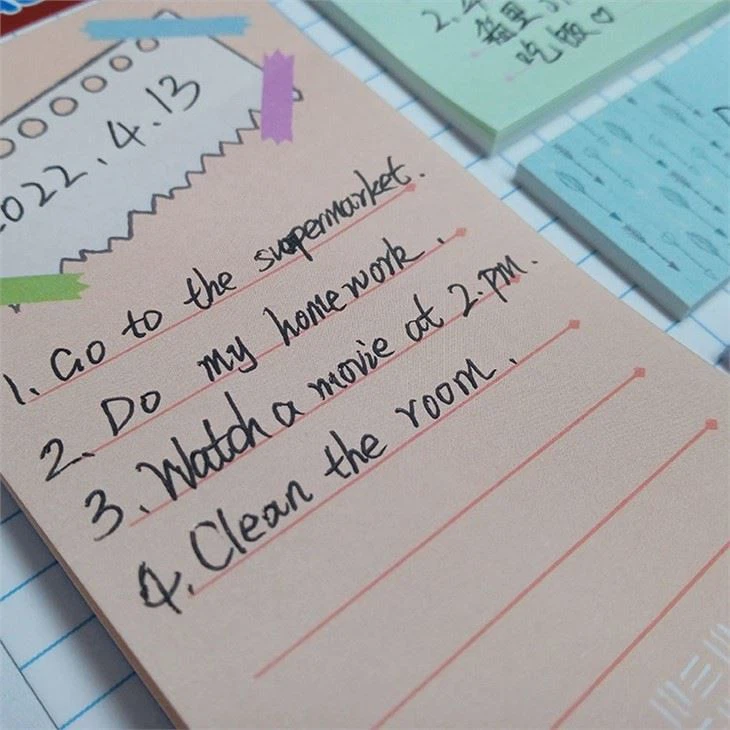 2022.4.13
1. Go to the supermarket.
2. Do my homework.
3. Watch a movie at 2.pm.
4. Clean the room.
吃饭♡